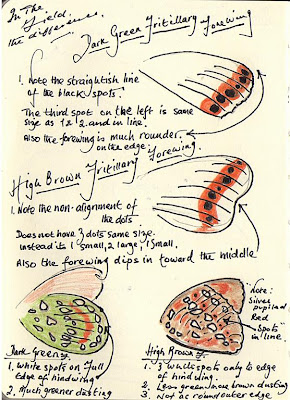 In The
Field.
the difference.
Dark Green Fritillary Forewing
1. Note the straightish line
of the black spots.
The third spot on the left is same
size as 1 & 2. and in line.
Also the forewing is much rounder.
on the edge
High Brown Fritillary Forewing.
1. Note the non-alignment of
the dots
Does not have 3 dots same size.
instead it's 1 small, 2 large, 1 small.
Also the forewing dips in toward the middle
Dark Green
1. White spots on full
edge of hindwing
2. Much greener dusting
"Note:
Silver
pupilled
Red
Spots"
in line.
High Brown F.
1. 3 white spots only to edge
of hindwing.
2. Less green/more brown dusting
3. Not as round outer edge